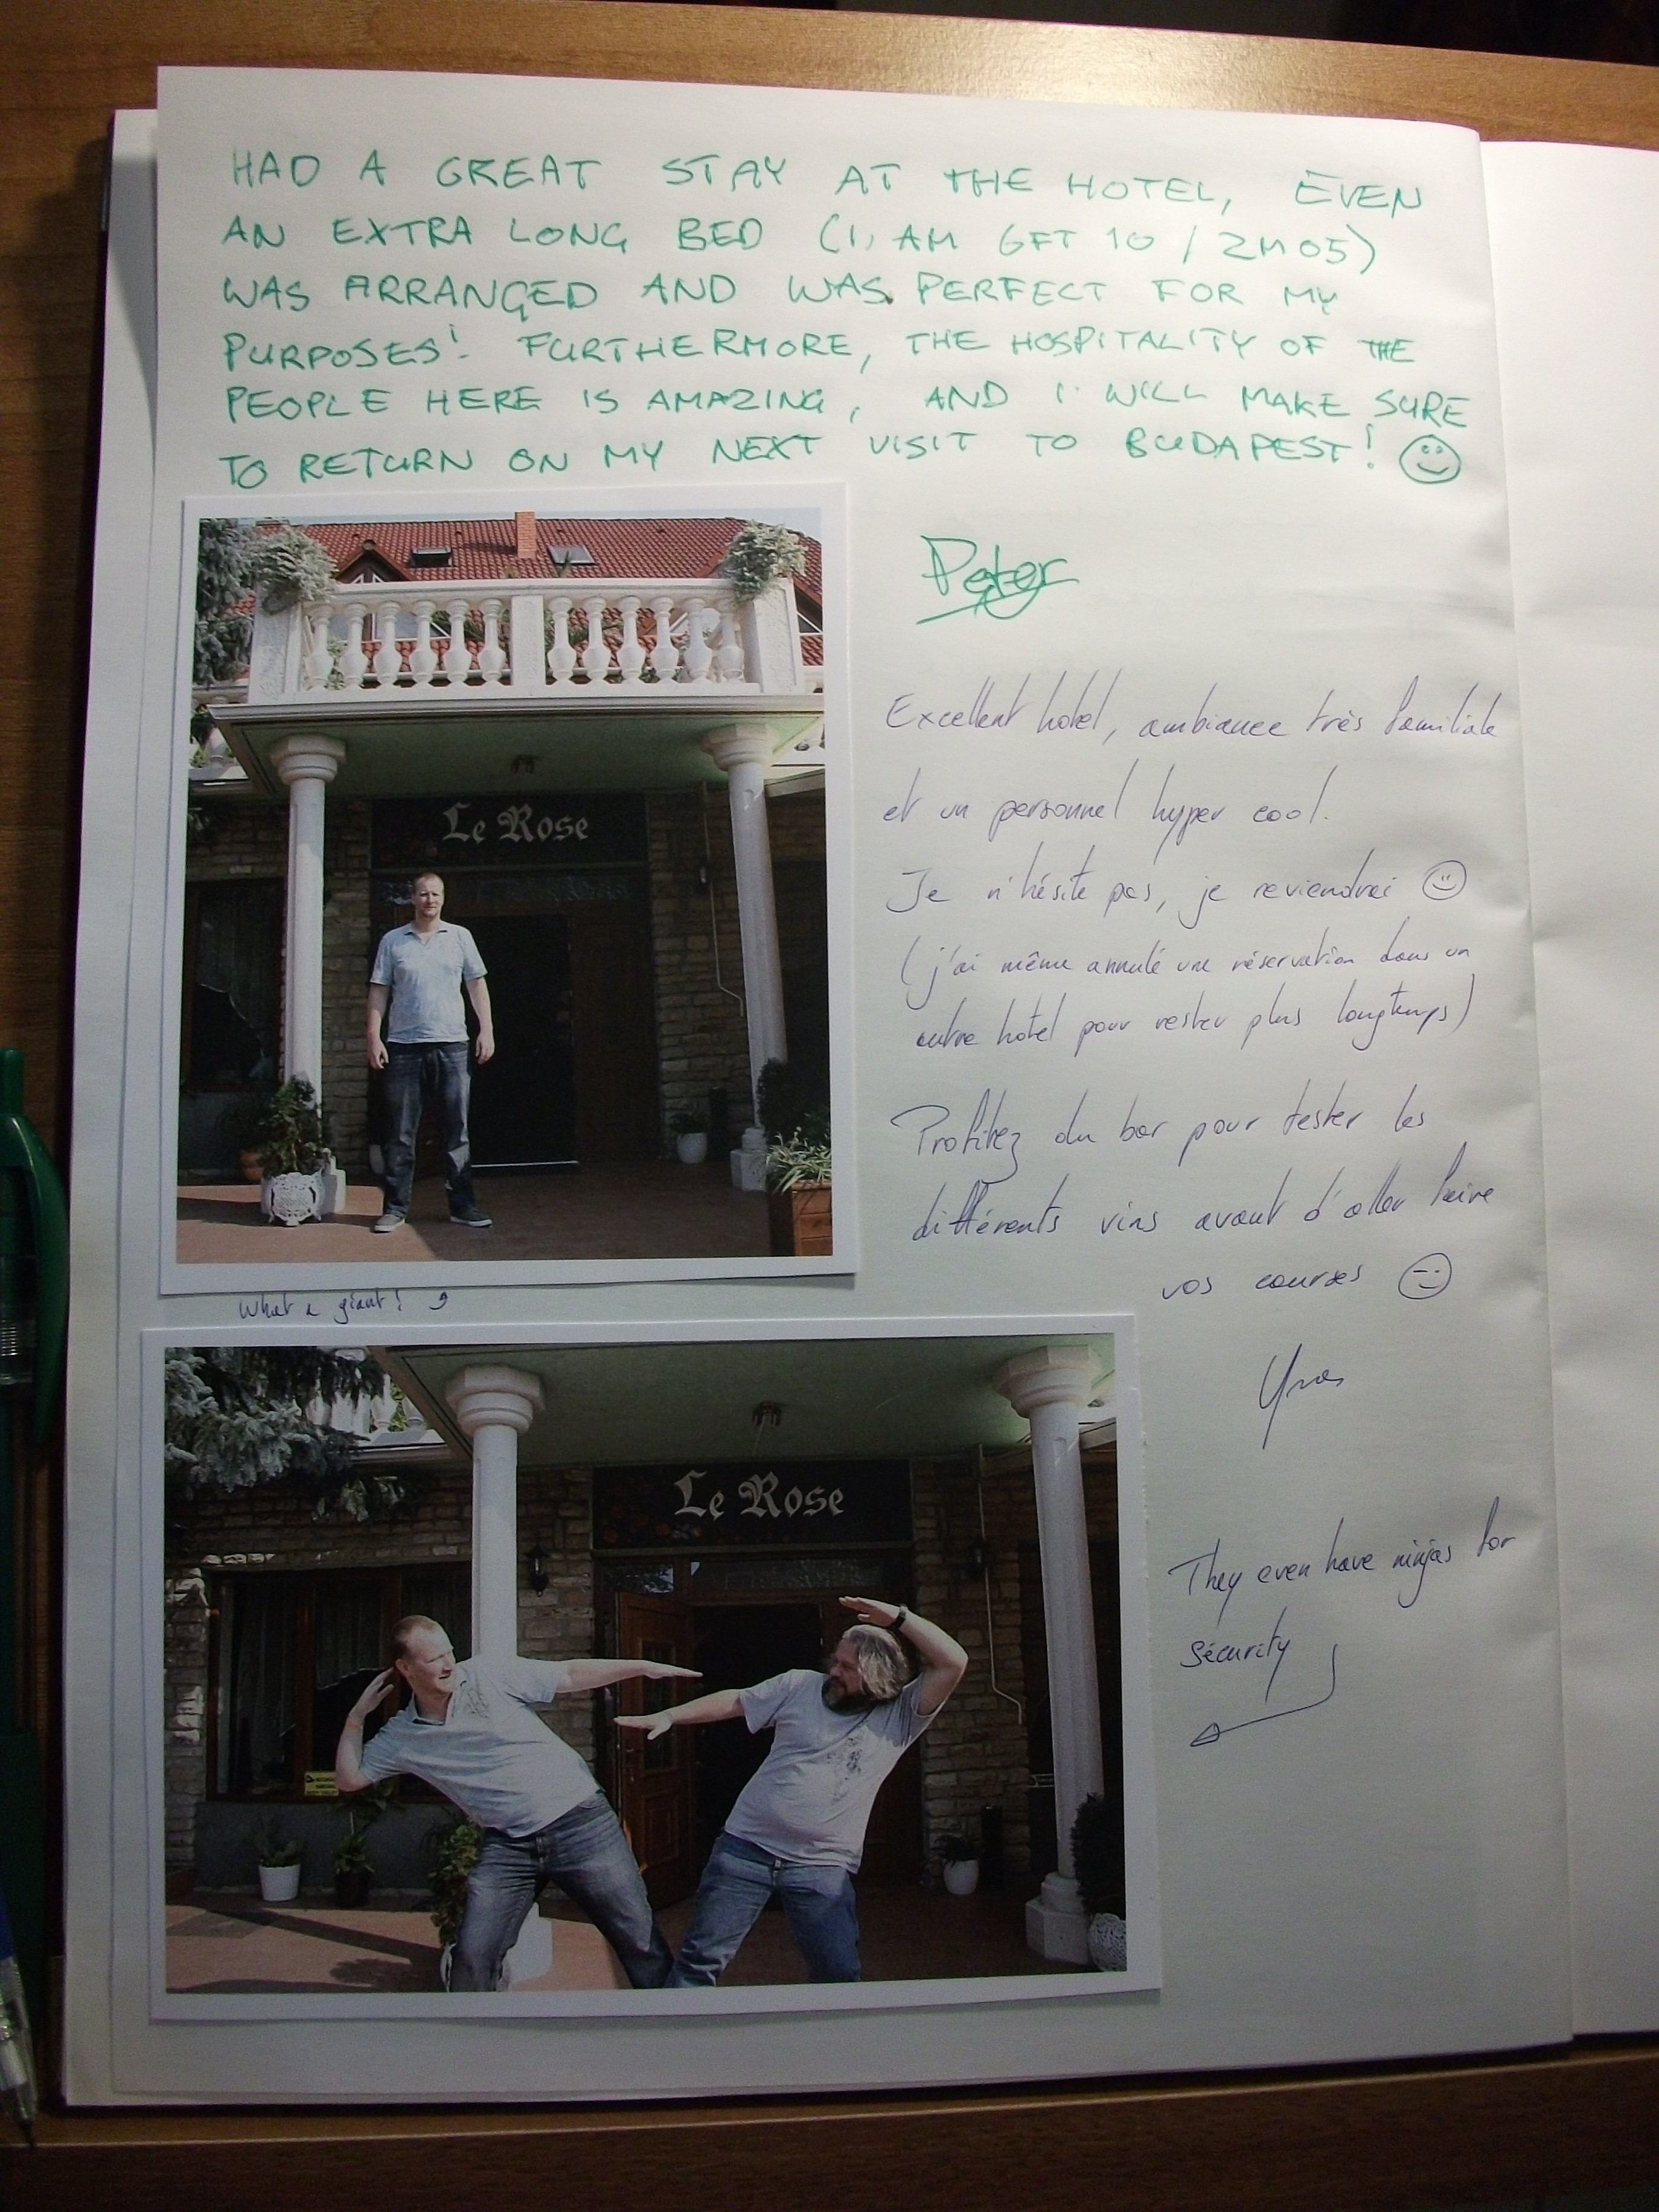 HAD A GREAT STAY AT THE HOTEL, EVEN
AN EXTRA LONG BED (I, AM 6FT 10 / 2M05)
WAS ARRANGED AND WAS PERFECT FOR MY
PURPOSES! FURTHERMORE, THE HOSPITALITY OF THE
PEOPLE HERE IS AMAZING, AND I WILL MAKE SURE
TO RETURN ON MY NEXT VISIT TO BUDAPEST! ☺
Peter
Le Rose
What a giant!
Excellent hotel, ambiance très familiale
et un personnel hyper cool.
Je n'hésite pas, je reviendrai ☺
(j'ai même annulé une réservation dans un
autre hotel pour rester plus longtemps)
Profitez du bar pour tester les
différents vins avant d'aller faire
vos courses ☺
Yves
Le Rose
They even have ninjas for
sécurity